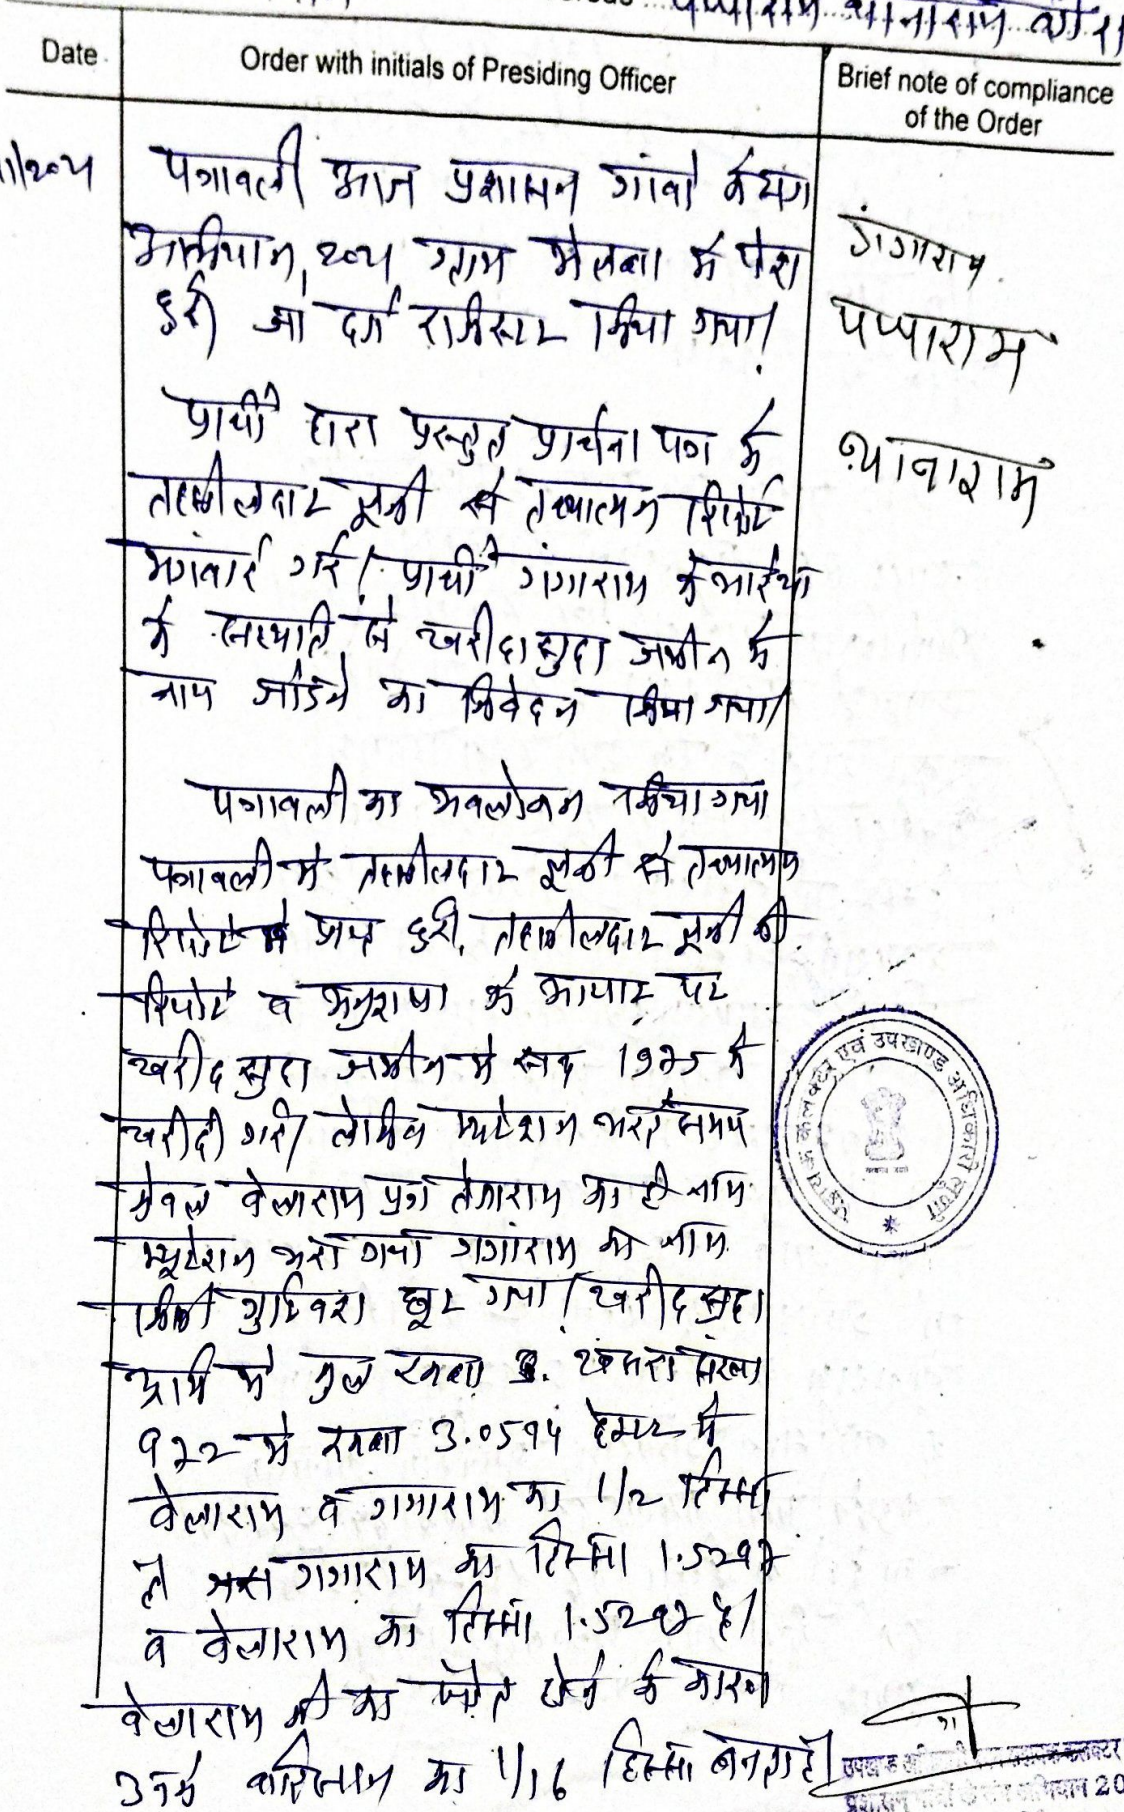 पप्पाराम थानाराम वगैरा
Date
Order with initials of Presiding Officer
Brief note of compliance
of the Order
पत्रावली आज प्रशासन गांवो के संग
अभियान, 2021 ग्राम में पेश
हुई जो दर्ज रजिस्टर किया गया।
गंगाराम
पप्पाराम
थानाराम
प्रार्थी द्वारा प्रस्तुत प्रार्थना पत्र के
तहसीलदार लूणी से तथ्यात्मक रिपोर्ट
मंगवाई गई। प्रार्थी गंगाराम के भाईयो
के सहमति से खरीदासुदा जमीन में
नाम जोडने का निवेदन किया गया।
पत्रावली का अवलोकन किया गया
पत्रावली मे तहसीलदार लूणी से तथ्यात्मक
रिपोर्ट प्राप्त हुई, तहसीलदार लूणी की
रिपोर्ट व अनुशंषा के आधार पर
खरीद सुदा जमीन मे सन 1975 में
खरीदी गई। लेकिन म्यूटेशन भरते समय
केवल वेलाराम पुत्र तेजाराम का ही नाम
म्यूटेशन भरा गया गंगाराम का नाम
किसी त्रुटिवश छूट गया। खरीद सुदा
भूमि मे कुल रकबा खसरा संख्या
922 मे रकबा 3.0594 हेक्टर में
वेलाराम व गंगाराम का 1/2 हिस्सा
गंगाराम का हिस्सा 1.5297
व वेलाराम का हिस्सा 1.5297 है।
वेलाराम जी का फौत होने के कारण
उनके वारिसान का 1/16 हिस्सा बनता है।
सहायक कलक्टर एवं उपखण्ड अधिकारी लूणी